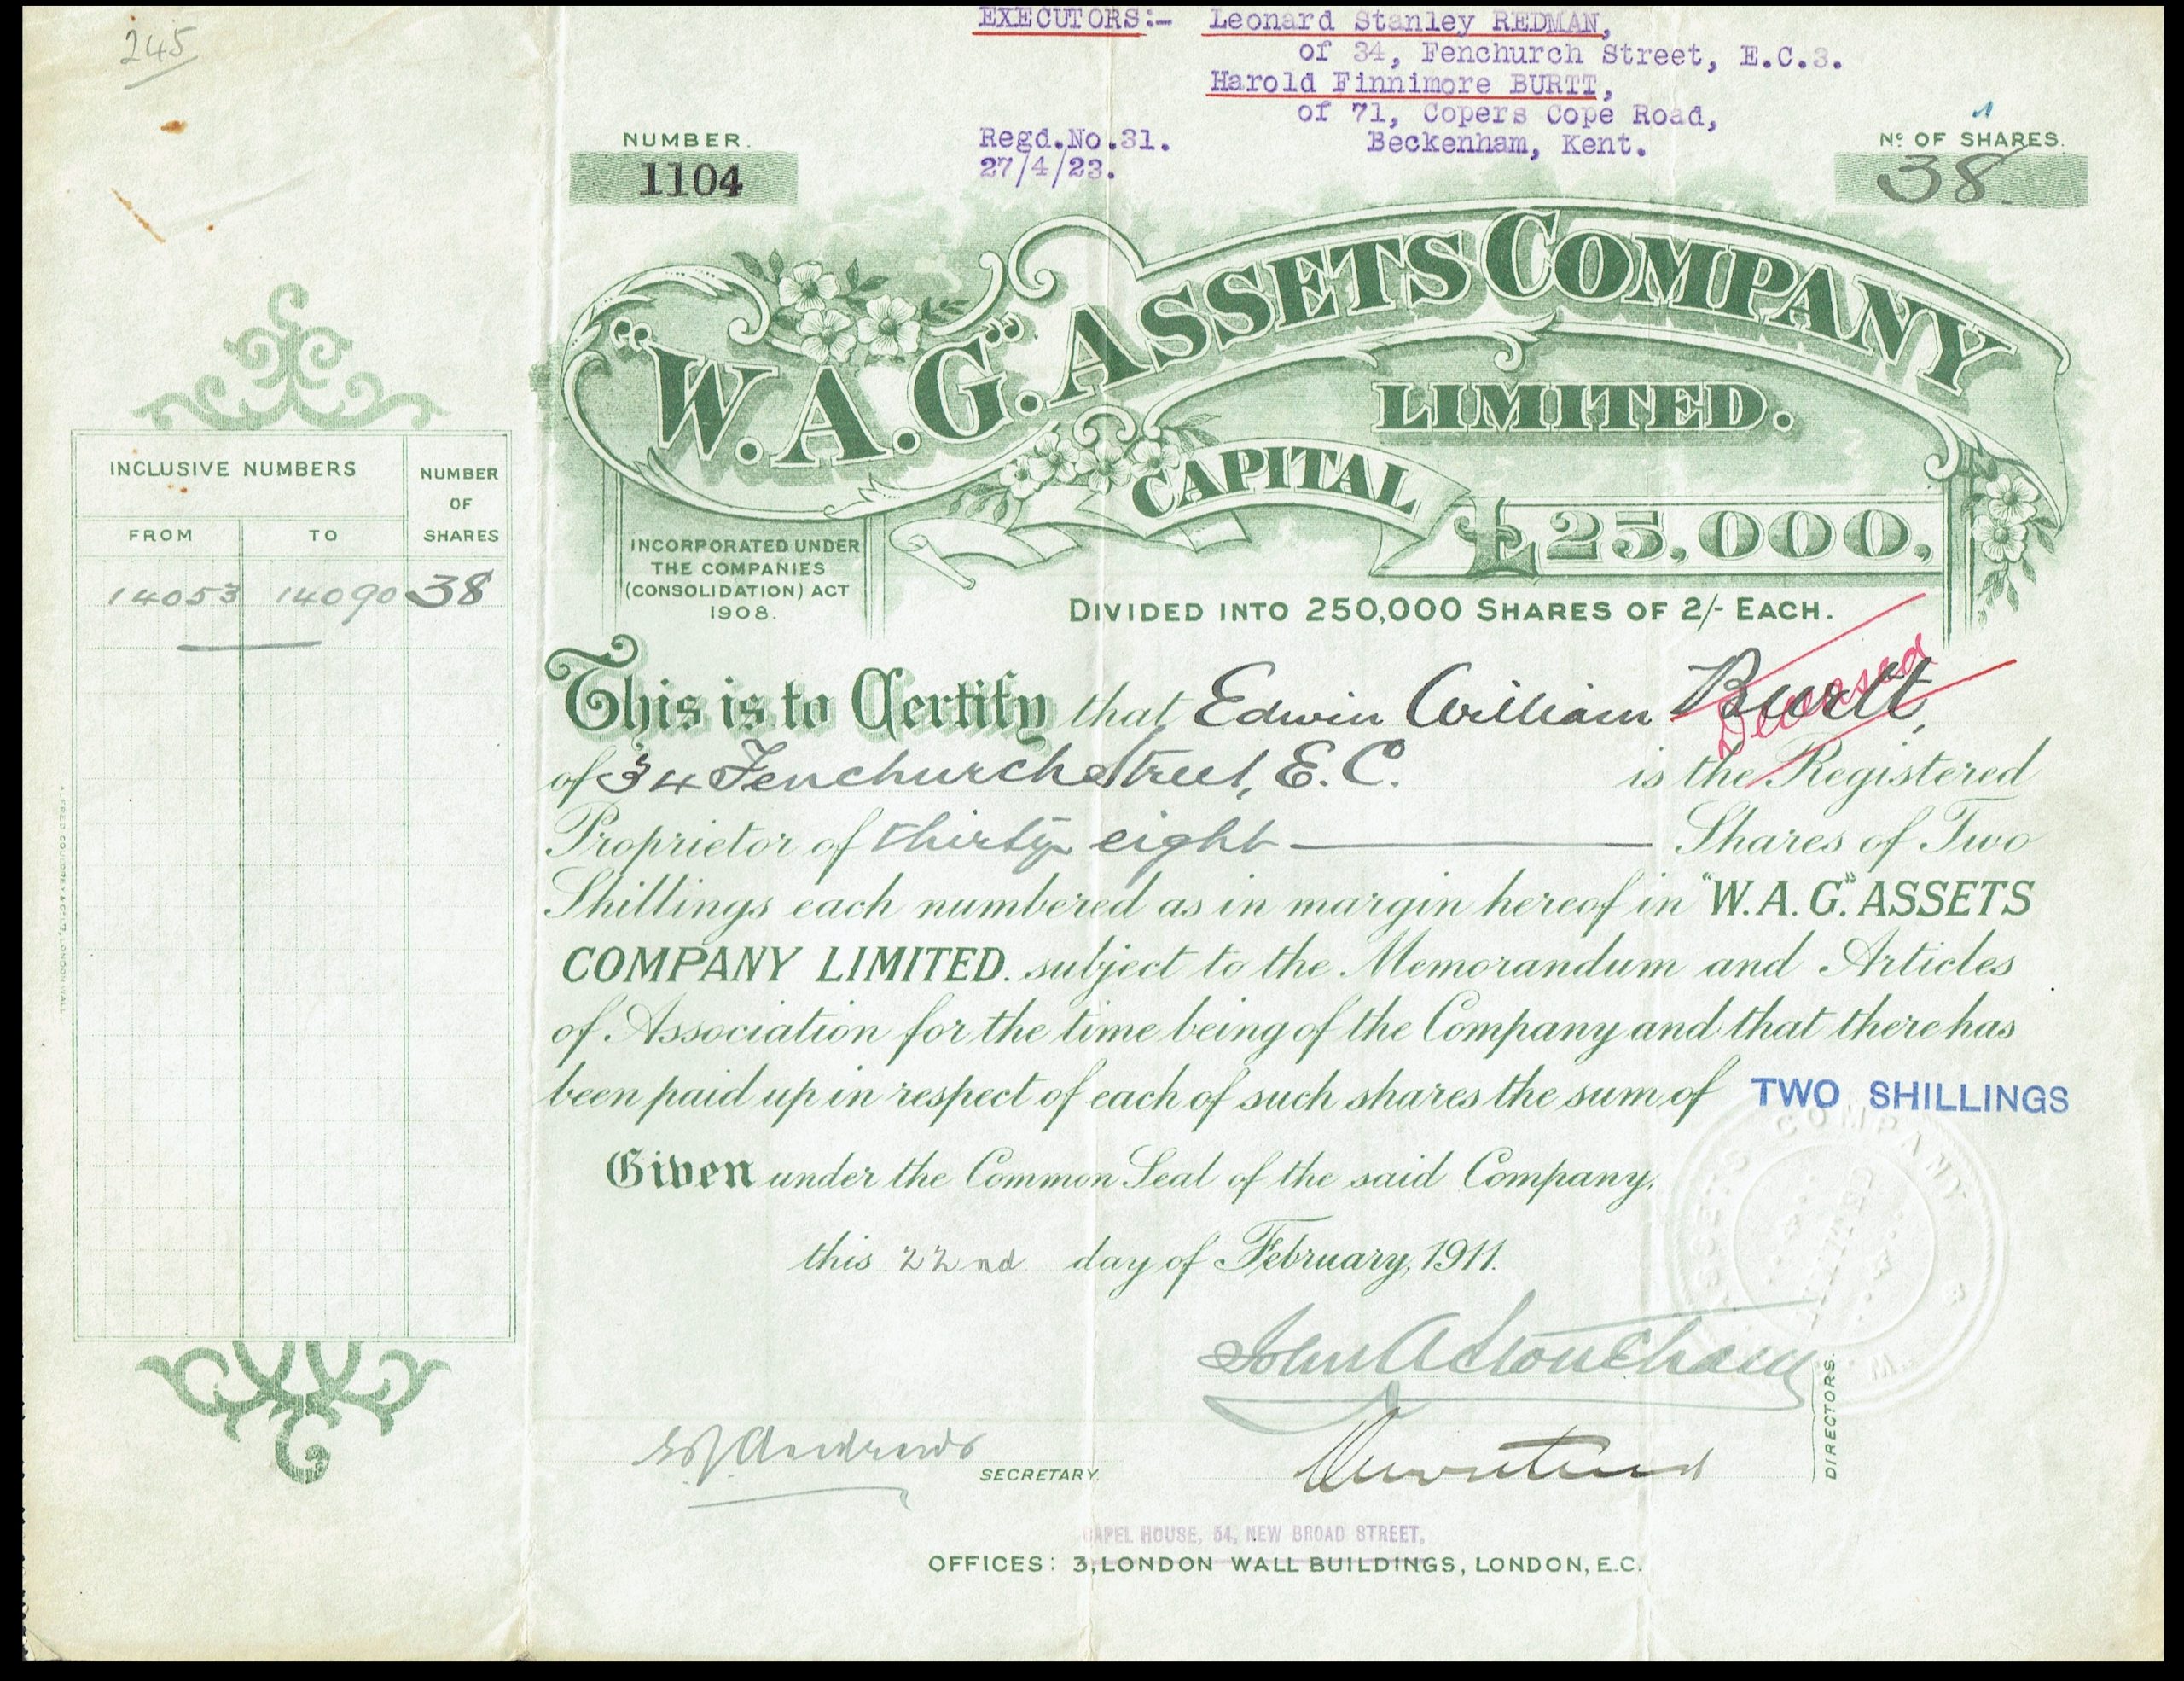 245
EXECUTORS:- Leonard Stanley REDMAN,
of 34, Fenchurch Street, E.C.3.
Harold Finnimore BURTT,
of 71, Copers Cope Road,
Beckenham, Kent.
Regd.No.31.
27/4/23.
NUMBER.
1104
Nº OF SHARES.
38.
"W.A.G." ASSETS COMPANY
LIMITED.
CAPITAL
£25,000,
INCORPORATED UNDER
THE COMPANIES
(CONSOLIDATION) ACT
1908.
DIVIDED INTO 250,000 SHARES OF 2/- EACH.
INCLUSIVE NUMBERS
NUMBER
OF
SHARES
FROM TO
14053 14090 38
This is to Certify that Edwin William Burtt,
Deceased
of 34 Fenchurch Street, E.C. is the Registered
Proprietor of thirty eight Shares of Two
Shillings each numbered as in margin hereof in "W.A.G." ASSETS
COMPANY LIMITED. subject to the Memorandum and Articles
of Association for the time being of the Company and that there has
been paid up in respect of each of such shares the sum of TWO SHILLINGS
Given under the Common Seal of the said Company,
this 22nd day of February, 1911.
ASSETS COMPANY
LIMITED
DIRECTORS.
Andrews
SECRETARY.
CAPEL HOUSE, 54, NEW BROAD STREET.
OFFICES: 3, LONDON WALL BUILDINGS, LONDON, E.C.